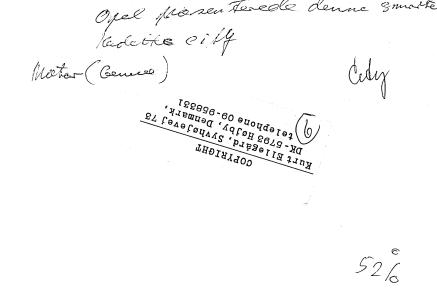 Opel præsenterede denne smarte
Kadette city
Motor (Genua)
City
COPYRIGHT
Kurt Ellegård, Syvhøjevej 73
DK-5793 Højby, Denmark,
telephone 09-958331
6
52/6